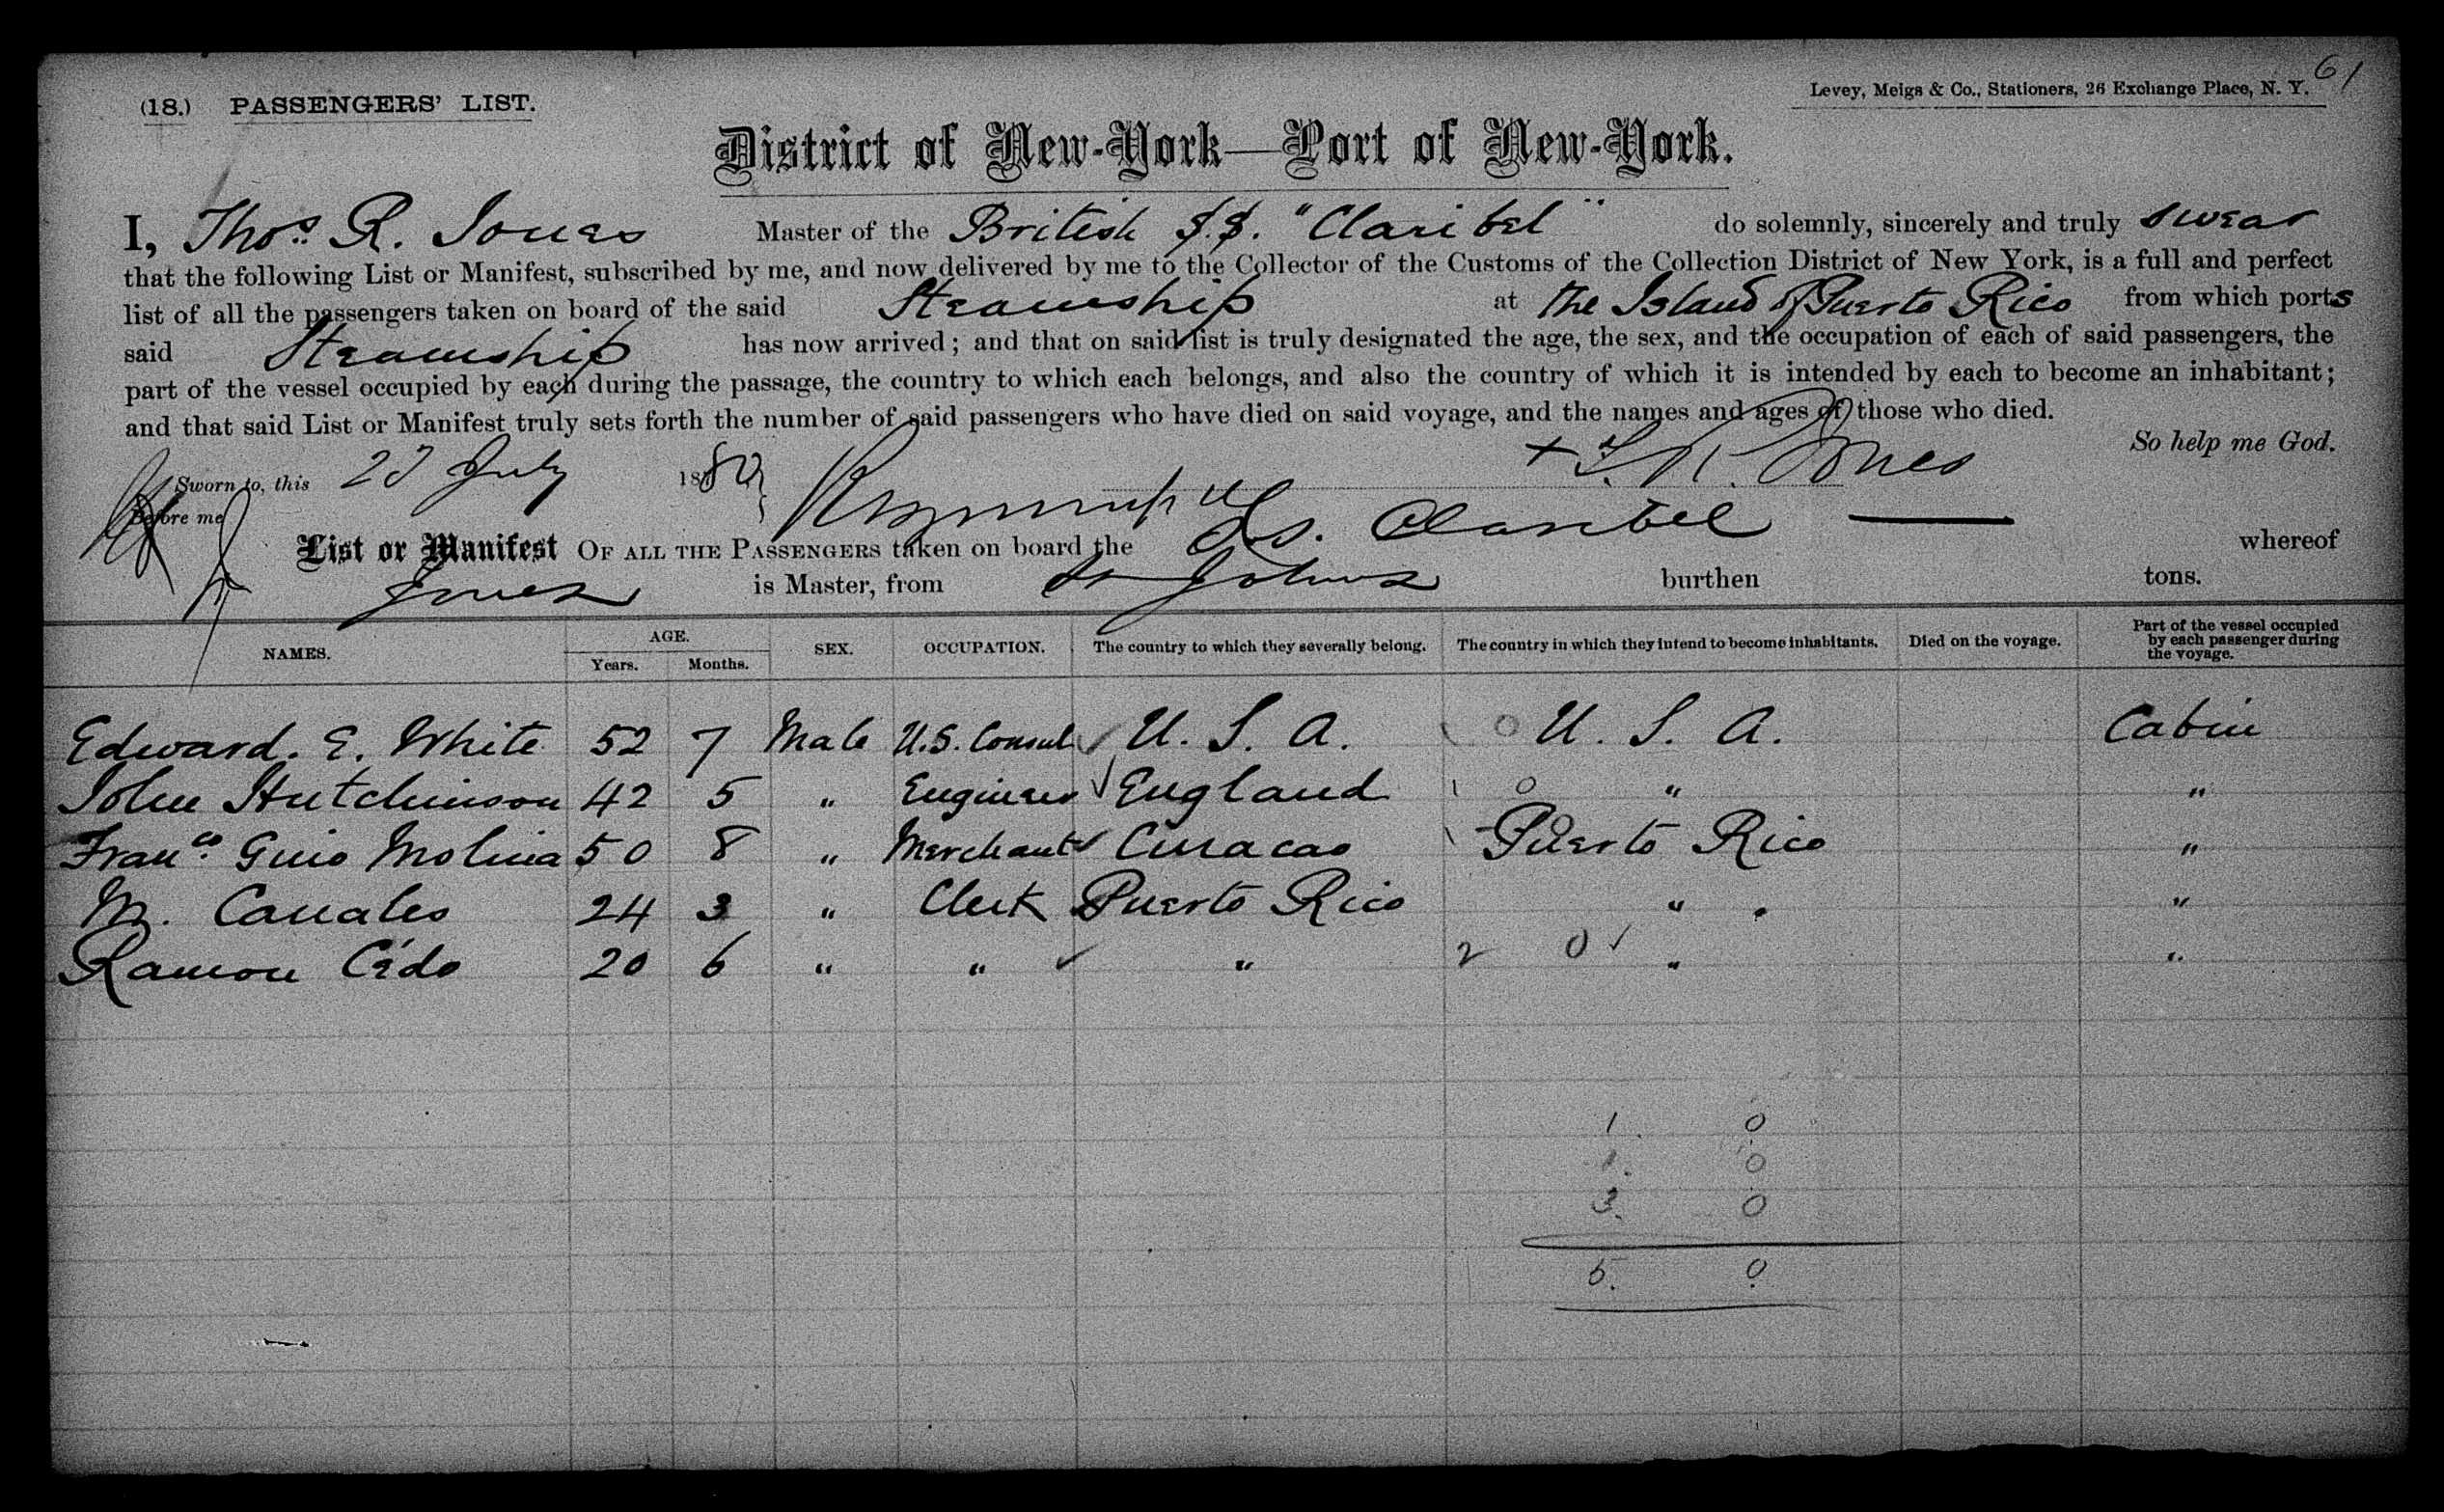 61
(18.) PASSENGERS' LIST.
Levey, Meigs & Co., Stationers, 26 Exchange Place, N. Y.
District of New-York—Port of New-York.
I, Thos. R. Jones Master of the British S.S. "Claribel" do solemnly, sincerely and truly swear
that the following List or Manifest, subscribed by me, and now delivered by me to the Collector of the Customs of the Collection District of New York, is a full and perfect
list of all the passengers taken on board of the said Steamship at the Island of Puerto Rico from which ports
said Steamship has now arrived; and that on said list is truly designated the age, the sex, and the occupation of each of said passengers, the
part of the vessel occupied by each during the passage, the country to which each belongs, and also the country of which it is intended by each to become an inhabitant;
and that said List or Manifest truly sets forth the number of said passengers who have died on said voyage, and the names and ages of those who died.
So help me God.
Sworn to, this 23 July 1880 + T. R. Jones
Before me
List or Manifest OF ALL THE PASSENGERS taken on board the S.S. Claribel whereof
Jones is Master, from St Johns burthen tons.
NAMES. AGE. Years. Months. SEX. OCCUPATION. The country to which they severally belong. The country in which they intend to become inhabitants. Died on the voyage. Part of the vessel occupied by each passenger during the voyage.
Edward. E. White 52 7 Male U.S. Consul U. S. A. 0 U. S. A. Cabin
John Hutchinson 42 5 " Engineer England 1 0 " "
Franco. Guio Molina 50 8 " Merchant Curacao Puerto Rico "
M. Canales 24 3 " Clerk Puerto Rico " "
Ramon Cédo 20 6 " " " 2 0 " "
1 0
1. 0
3. 0
5. 0